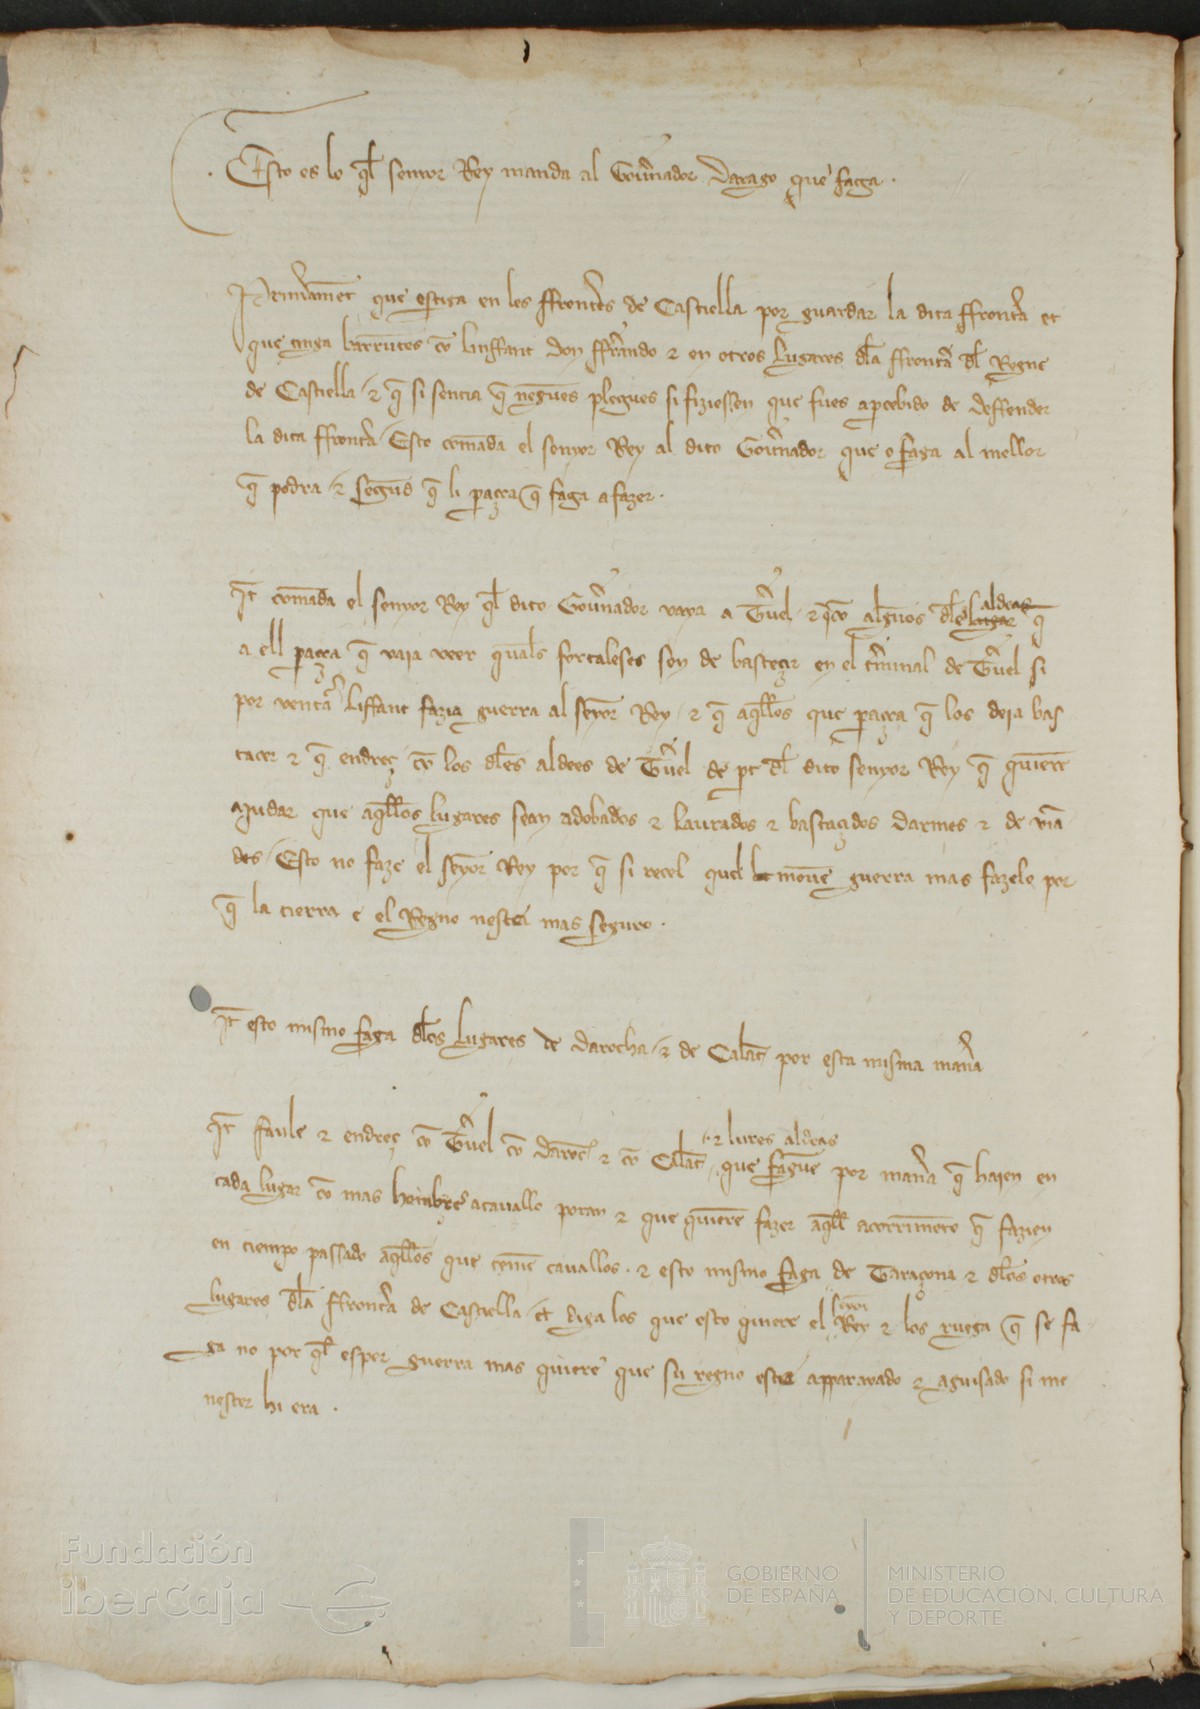 Esto es lo q̃l senyor Rey manda al Gou̾nador Darago que faga .
Primeramẽt que estiga en les ffront̾es de Castiella por guardar la dita ffront̾a et
que tinga barruntes cõ linffant don fferrando ⁊ en otros lugares dla ffront̾a dl Regne
de Castiella / ⁊ q̃ si sentia q̃ negunes plegues si fiziessen que fues apercebido de deffender
la dita ffront̾a / Esto comãda el senyor Rey al dito Gou̾nador que o faga al mellor
q̃ podra / ⁊ segund q̃ li parra q̃ faga a fazer .
It̃ comãda el senyor Rey q̃l dito Gou̾nador vaya a T̾uel ⁊ alguños dles aldeas q̃
a ell parra q̃ vaja veer quals fortaleses son de bastecer en el t̾minal de T̾uel si
por vent̃a liffant fazia guerra al senyor Rey / ⁊ q̃ aq̃llos que parra q̃ los deja bas
tacer ⁊ q̃ endreç cõ los dles aldees de T̾uel de pt dl dito senyor Rey q̃ quierẽ
ajudar que aq̃llos lugares sean adobados ⁊ laurados ⁊ bastaçidos darmes ⁊ de viã
des / Esto no faze el senyor Rey por q̃ si recel quel mouẽ guerra mas fazelo por
q̃ la tierra e el Regno nestei mas seguro .
It̃ esto mismo faga dlos lugares de Darocha / ⁊ de Calat̃ por esta misma man̾a
It̃ faule ⁊ endreç cõ T̾uel cõ Daroc̃ ⁊ cõ Calat̃ ⁊ lures aldeas que faguẽ por man̾a q̃ hajen en
cada lugar cõ mas hombres acauallo poran ⁊ que quierẽ fazer aq̃ll acorrimẽto q̃ fazien
en tiempo passado aq̃llos que teniẽ cauallos . ⁊ esto mismo faga de Taraçona ⁊ dlos otros
lugares dla ffront̾a de Castiella / Et diga los que esto quiere el senyor Rey ⁊ los ruega q̃ se fa
ga no por q̃l esper guerra mas quiere que su regno estei apparayado ⁊ aguisado si me
nester hi era .
Fundación
iberCaja
GOBIERNO
DE ESPAÑA
MINISTERIO
DE EDUCACIÓN, CULTURA
Y DEPORTE